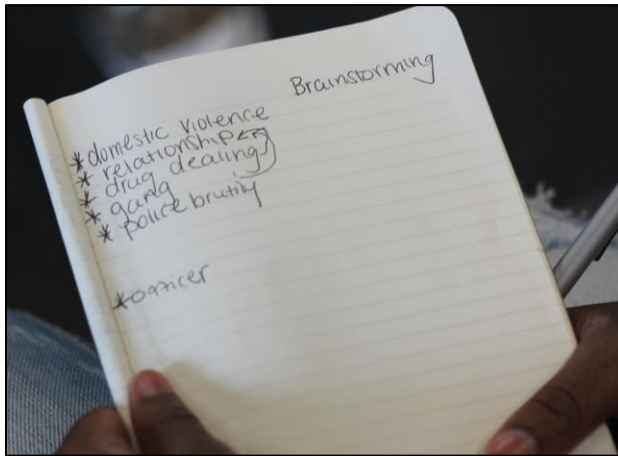 Brainstorming
*domestic violence
* relationship
* drug dealing
* gang
* police brutity
*officer